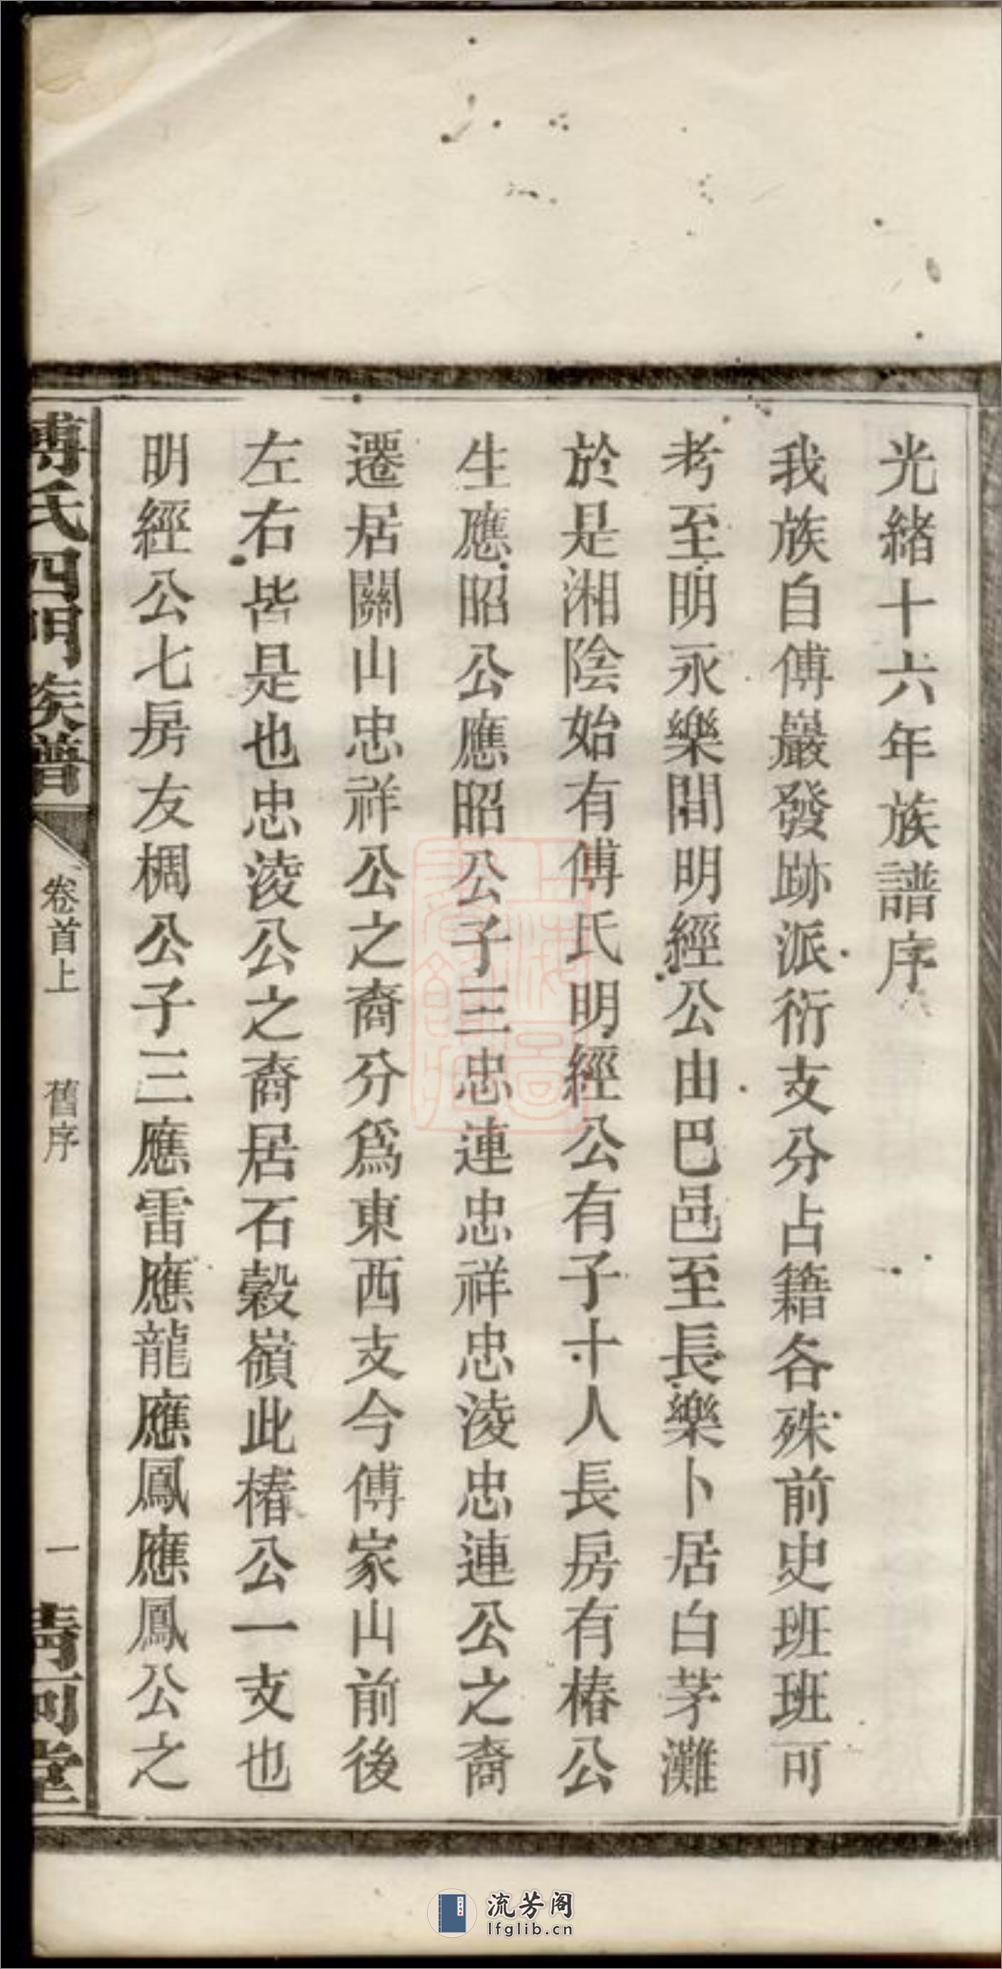 光緒十六年族譜序
我族自傅巖發跡派衍支分占籍各殊前史班班可
考至明永樂間明經公由巴邑至長樂卜居白茅灘
於是湘陰始有傅氏明經公有子十人長房有椿公
生應昭公應昭公子三忠連忠祥忠淩忠連公之裔
遷居關山忠祥公之裔分爲東西支今傅家山前後
左右皆是也忠淩公之裔居石穀嶺此椿公一支也
明經公七房友棡公子三應雷應龍應鳳應鳳公之
傅氏四門族譜
卷首上
舊序
一
清河堂
流芳阁
lfglib.cn